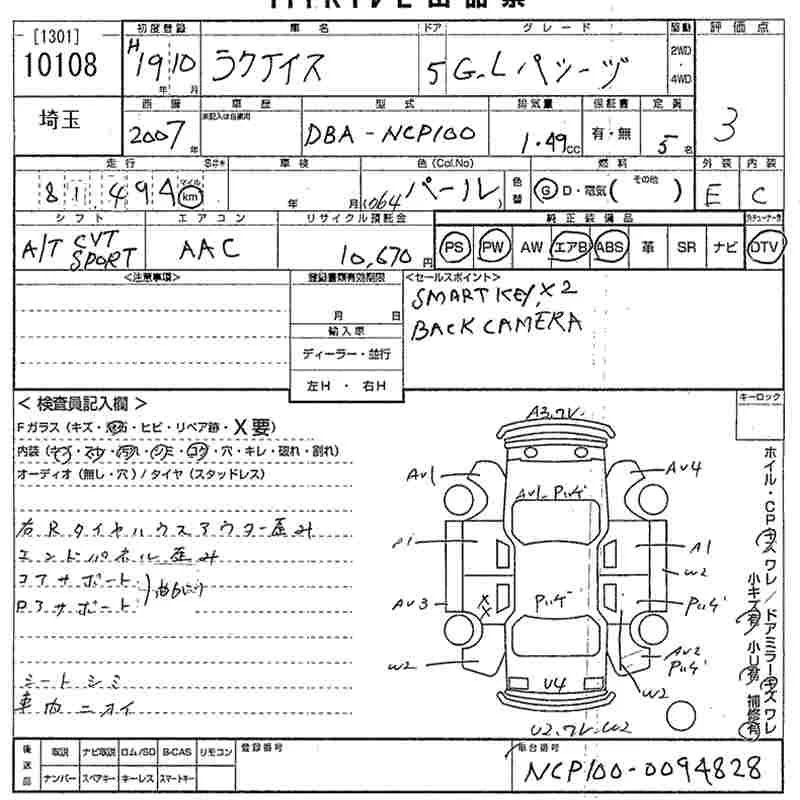 [1301]
10108
初度登録
H 19年10月
車名
ラクティス
ドア
5
グレード
G.Lパッケージ
駆動
2WD
4WD
評価点
3
埼玉
2007年
車歴
未記入は自家用
型式
DBA-NCP100
排気量
1.49cc
保証書
有・無
定員
5名
走行
81,494
マイル
km
車検
年 月
色(Col.No)
(064 パール)
色替
燃料
G D・電気( その他 )
外装
E
内装
C
シフト
A/T CVT SPORT
エアコン
AAC
リサイクル預託金
10,670円
純正装備品
PS PW AW エアB ABS 革 SR ナビ DTV
<注意事項>
登録書類有効期限
月 日
輸入車
ディーラー・並行
左H・右H
<セールスポイント>
SMART KEY X2
BACK CAMERA
キーロック
<検査員記入欄>
Fガラス(キズ・飛石・ヒビ・リペア跡・X要)
内装(キズ・スレ・汚れ・シミ・コゲ・穴・キレ・破れ・割れ)
オーディオ(無し・穴)/タイヤ(スタッドレス)
右Rタイヤハウスアウター歪み
エンドパネル歪み
コアサポート
シートシミ
車内ニオイ
A3.ワレ.
AV1
AV4
A1
W2
AV3
W2
AV2
W2
U4
U2.ワレ.W2
ホイル・CPキズワレ/ドアミラーキズワレ
小キズ有 小U有 補修有
後送品
取説 ナビ取説 ロム/SD B-CAS リモコン
ナンバー スペアキー キーレス スマートキー
登録番号
車台番号
NCP100-0094828